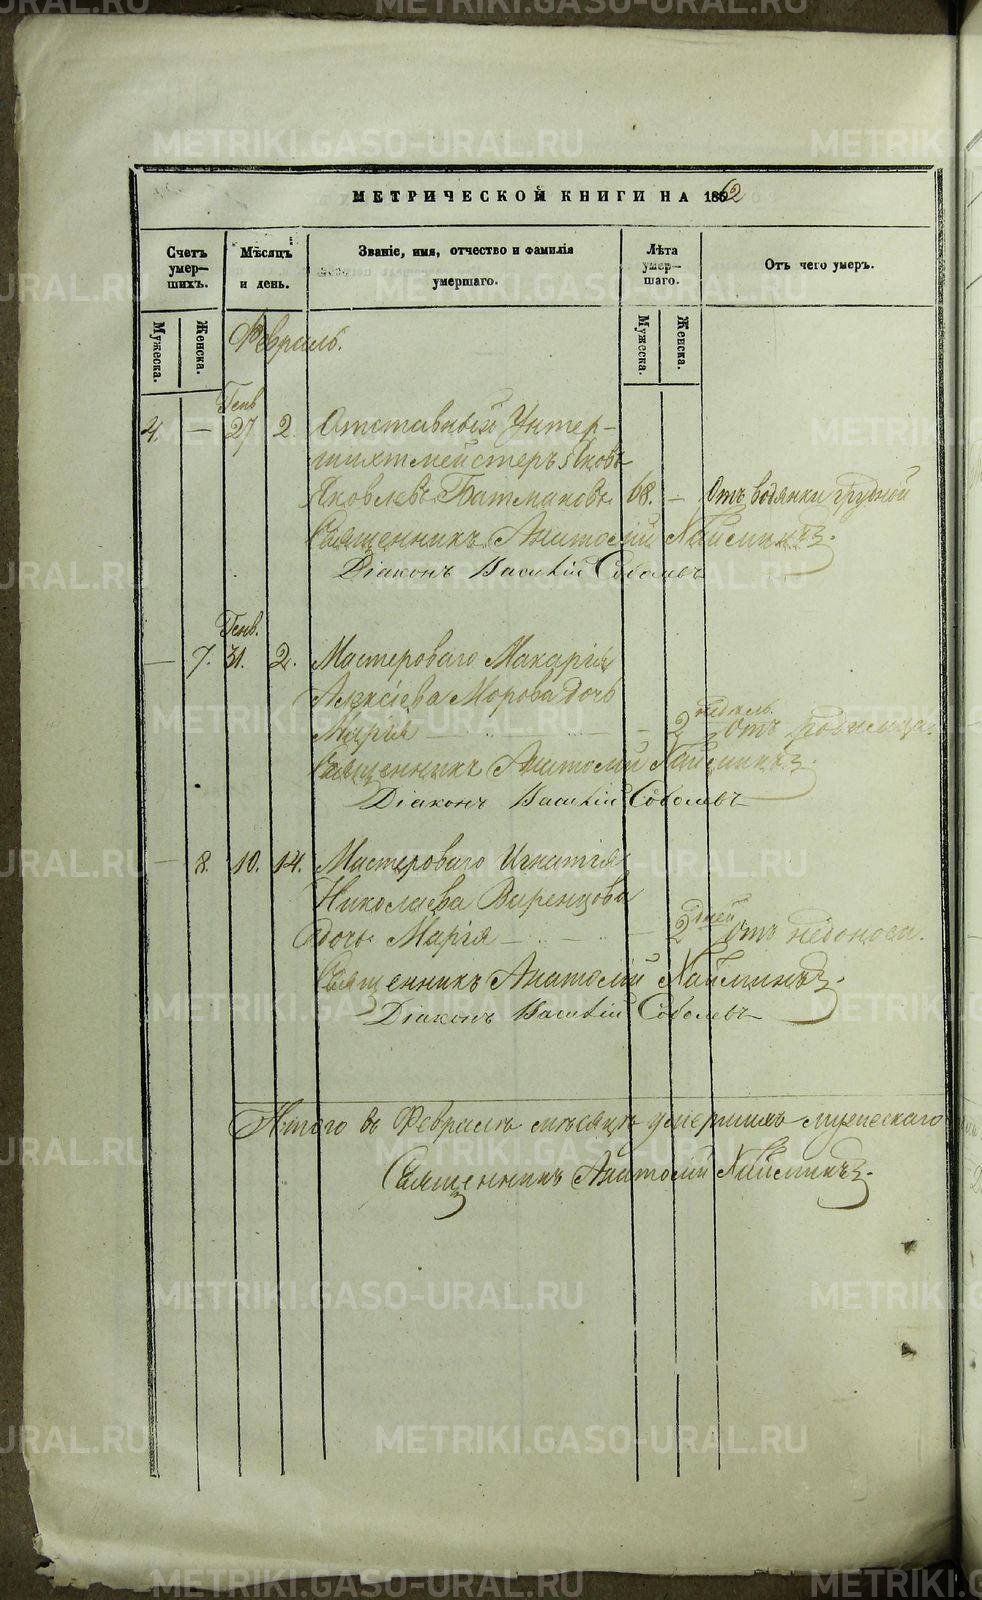 МЕТРИЧЕСКОЙ КНИГИ НА 1862
Счетъ умер—шихъ.
Мужеска.
Женска.
Мѣсяцъ и день.
Званіе, имя, отчество и фамилія умершаго.
Лѣта умер—шаго.
Мужеска.
Женска.
Отъ чего умеръ.
Февраль.
Генв.
4. — 27 2. Отставный Унтер-
шихтмейстеръ Яковъ
Яковлевъ Батмановъ 68. — Отъ водянки грудной
Священникъ Анатолій
Діаконъ Василій Соболевъ
Генв.
— 7. 31. 2. Мастероваго Макарія
Алексіева Морова дочь
недѣль.
Марія — 2 Отъ родимца.
Священникъ Анатолій
Діаконъ Василій Соболевъ
— 8. 10. 14. Мастероваго Игнатія
Николаева Варенцова
дней
дочь Марія — 2 Отъ недоноса.
Священникъ Анатолій
Діаконъ Василій Соболевъ
Итого въ Февралѣ мѣсяцѣ умершихъ мужескаго
Священникъ Анатолій
METRIKI.GASO-URAL.RU